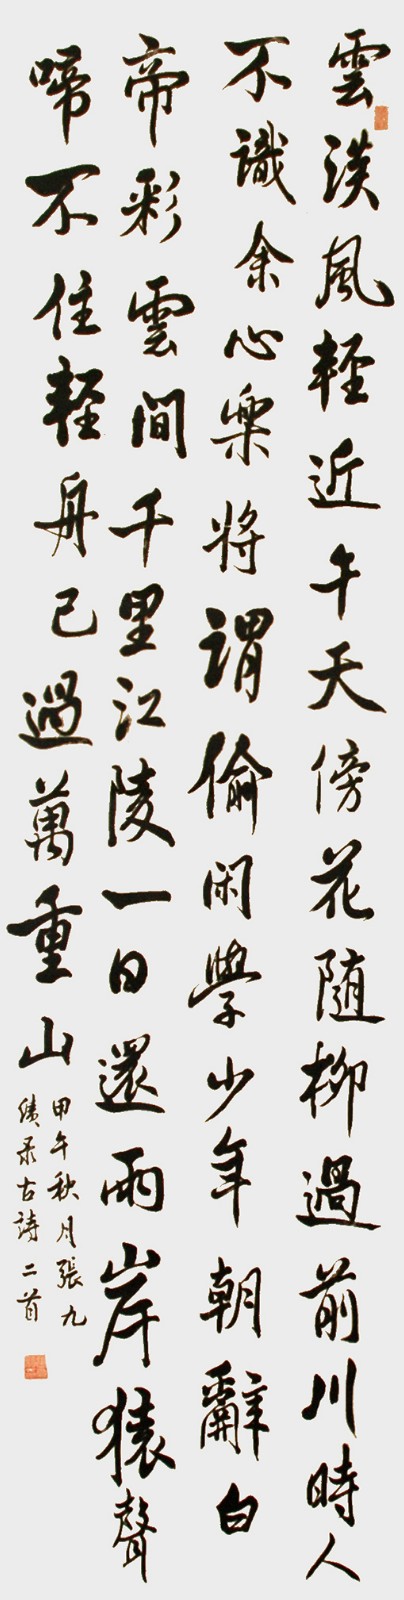 雲淡風輕近午天傍花随柳過前川時人
不識余心樂將謂偷閑學少年朝辭白
帝彩雲間千里江陵一日還兩岸猿聲
啼不住輕舟已過萬重山
甲午秋月張九
录古詩二首